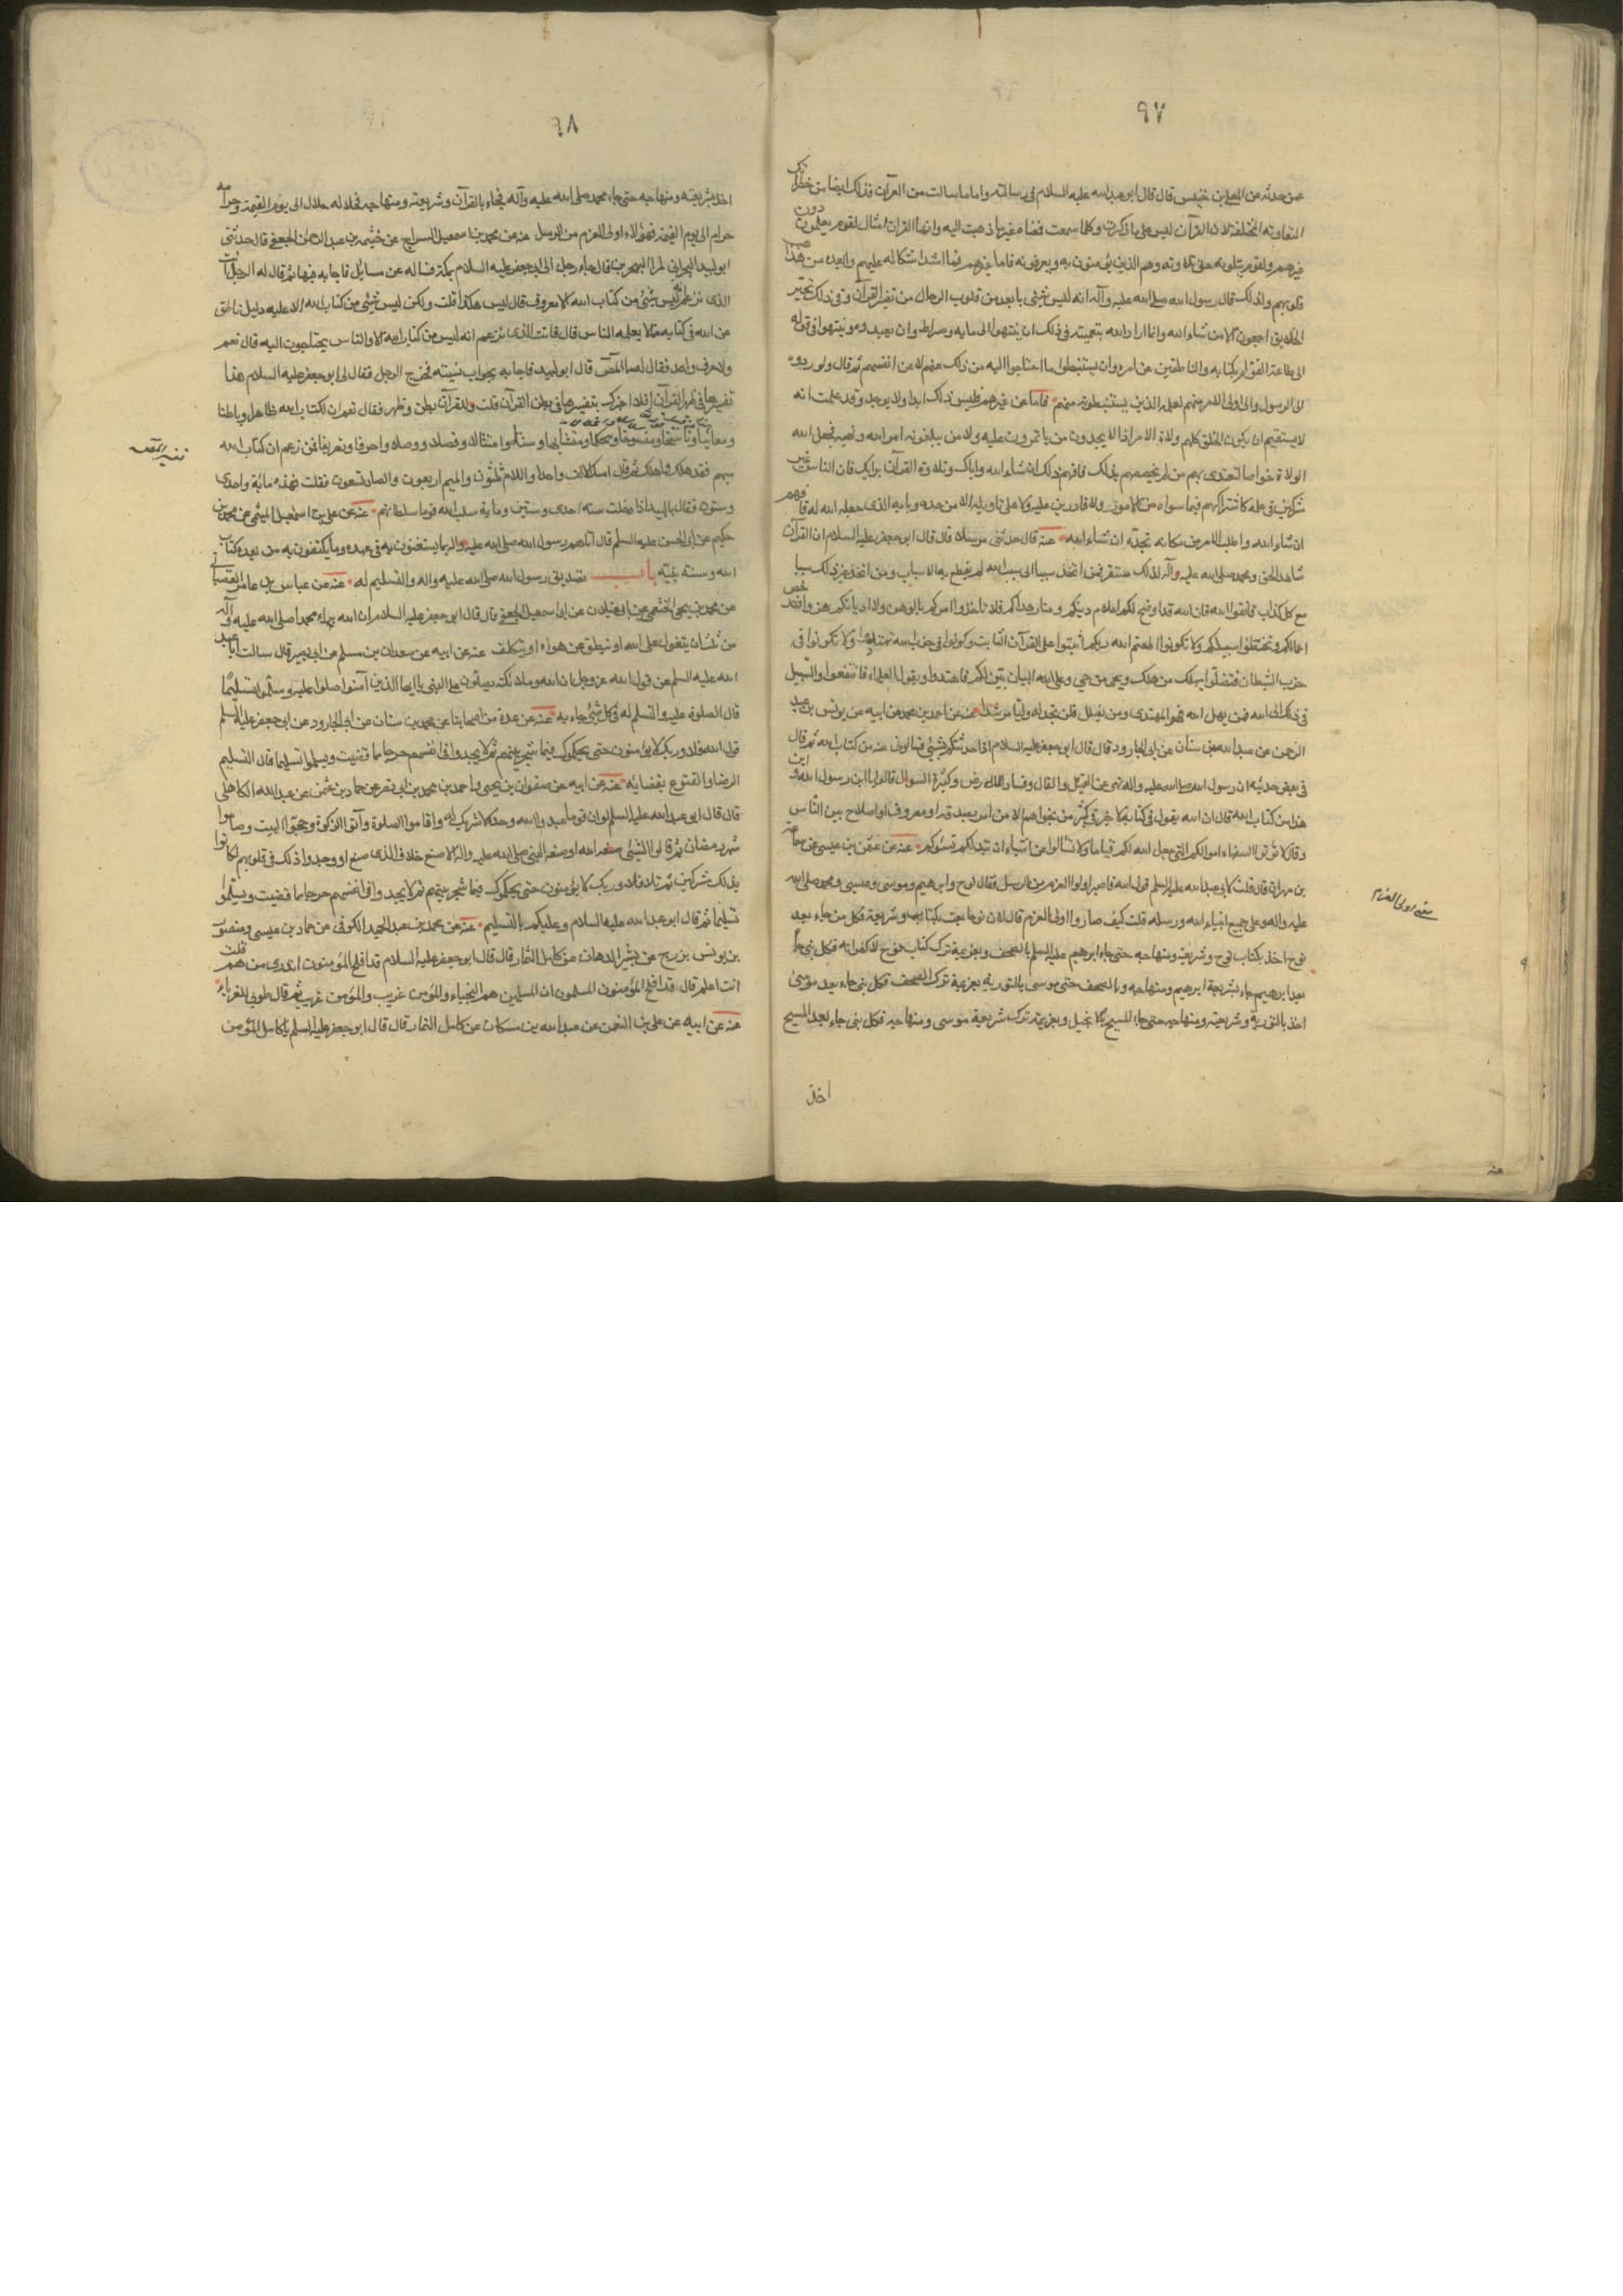 ٩٧
عمن حدثه عن المعلى بن خنيس قال قال ابو عبدالله عليه السلام فى رسالته واما ما سالت من القرآن فذلك ايضا من خطراتك
المتفاوته المختلفة لان القرآن ليس على ما ذكرت وكلما سمعت فمعناه غير ما ذهبت اليه وانما القرآن امثال لقوم يعلمون دون
غيرهم ولقوم يتلونه حق تلاوته وهم الذين يؤمنون به ويعرفونه فاما غيرهم فما اشد اشكاله عليهم وابعده من مذاهب
قلوبهم ولذلك قال رسول الله صلى الله عليه وآله انه ليس شيئى بابعد من قلوب الرجال من تفسير القرآن وفى ذلك تحير
الخلايق اجمعون الا من شاء الله وانما اراد الله بتعميته فى ذلك ان ينتهوا الى بابه وصراطه وان يعبدوه وينتهوا فى قوله
الى طاعة القوام بكتابه والناطقين عن امره وان يستنبطوا ما احتاجوا اليه من ذلك عنهم لا عن انفسهم ثم قال ولو ردوه
الى الرسول والى اولى الامر منهم لعلمه الذين يستنبطونه منهم فاما عن غيرهم فليس يعلم ذلك ابدا ولا يوجد وقد علمت انه
لا يستقيم ان يكون الخلق كلهم ولاة الامر اذا لا يجدون من ياتمرون عليه ولا من يبلغونه امر الله ونهيه فجعل الله
الولاة خواصا ليقتدى بهم من لم يخصصهم بذلك فافهم ذلك ان شاء الله واياك وتلاوة القرآن برايك فان الناس غير
مشتركين فى علمه كاشتراكهم فيما سواه من الامور ولا قادرين عليه ولا على تاويله الا من حده وبابه الذى جعله الله له فافهم
ان شاء الله واطلب الامر من مكانه تجده ان شاء الله عنه قال حدثنى مرسلا قال قال ابو جعفر عليه السلام ان القرآن
شاهد الحق ومحمد صلى الله عليه وآله لذلك مستقر فمن اتخذ سببا الى سبب الله لم يقطع به الاسباب ومن اتخذ غير ذلك سببا
مع كل كذاب فاتقوا الله فان الله قد اوضح لكم اعلام دينكم ومنار هداكم فلا تاخذوا امركم بالوهن ولا اديانكم هزوا فتدحض
اعمالكم وتخطئوا سبيلكم ولا تكونوا اطعتم الله ربكم اثبتوا على القرآن الثابت وكونوا فى حزب الله تهتدوا ولا تكونوا فى
حزب الشيطان فتضلوا يهلك من هلك ويحيى من حي وعلى الله البيان بين لكم فاهتدوا وبقول العلماء فانتفعوا والسبيل
فى ذلك الى الله فمن يهدى الله فهو المهتدى ومن يضلل فلن تجد له وليا مرشدا عنه عن احمد بن محمد عن ابيه عن يونس بن عبد
الرحمن عن عبدالله بن سنان عن ابى الجارود قال قال ابو جعفر عليه السلام اذا حدثتكم بشيئى فسالونى عنه من كتاب الله ثم قال
فى بعض حديثه ان رسول الله صلى الله عليه واله نهى عن القيل والقال وفساد الارض وكثرة السوال فقالوا يا ابن رسول الله واين
هذا من كتاب الله قال ان الله يقول فى كتابه لا خير فى كثير من نجواهم الا من امر بصدقة او معروف او اصلاح بين الناس
وقال لا تؤتوا السفهاء اموالكم التى جعل الله لكم قياما ولا تسالوا عن اشياء ان تبد لكم تسؤكم عنه عن عثمن بن عيسى عن سماعة
بن مهران قال قلت لابى عبدالله عليه السلم قول الله فاصبر كما صبر اولوا العزم من الرسل فقال نوح وابرهيم وموسى وعيسى ومحمد صلى الله
عليه واله وعلى جميع انبياء الله ورسله قلت كيف صاروا اولى العزم قال لان نوحا بعث بكتابه وشريعة فكل من جاء بعد
نوح اخذ بكتاب نوح وشريعته ومنهاجه حتى جاء ابرهيم عليه السلم بالصحف وبعزيمة ترك كتاب نوح لا كفرا به فكل نبى جاء
بعد ابرهيم جاء بشريعة ابرهيم ومنهاجه وبالصحف حتى موسى بالتورية وبعزيمة ترك الصحف فكل نبى جاء بعد موسى
اخذ بالتورية وشريعته ومنهاجه حتى جاء المسيح بالانجيل وبعزيمة ترك شريعة موسى ومنهاجه فكل نبى جاء بعد المسيح
اخذ
معنى اولى العزم
٦٨
اخذ بشريعته ومنهاجه حتى جاء محمد صلى الله عليه وآله فجاء بالقرآن وشريعته ومنهاجه فحلاله حلال الى يوم القيمة وحرامه
حرام الى يوم القيمة فهؤلاء اولى العزم من الرسل عنه عن محمد بن اسمعيل السراج عن خثيمه بن عبدالرحمن الجعفى قال حدثنى
ابو لبيد البحرانى المراء البحرين قال جاء رجل الى ابى جعفر عليه السلام بمكة فساله عن مسايل فاجابه فيها ثم قال له الرجل انت
الذى تزعم انه ليس شيئى من كتاب الله الا معروف قال ليس هكذا قلت ولكن ليس شيئى من كتاب الله الا عليه دليل ناطق
عن الله فى كتابه مما لا يعلمه الناس قال فانت الذى تزعم انه ليس من كتاب الله الا والناس يحتاجون اليه قال نعم
ولا حرف واحد فقال له فما المص قال ابو لبيد فاجابه بجواب نسيته فخرج الرجل فقال لى ابو جعفر عليه السلام هذا
تفسيرها فى ظهر القرآن افلا اخبرك بتفسيرها فى بطن القرآن قلت وللقرآن بطن وظهر فقال نعم ان لكتاب الله ظاهرا وباطنا
ومعاينا وناسخا ومنسوخا ومحكما ومتشابها وسننا وامثالا وفصلا ووصلا واحرفا وتصريفا فمن زعم ان كتاب الله
مبهم فقد هلك واهلك ثم قال امسك الالف واحد واللام ثلثون والميم اربعون والصاد تسعون فقلت فهذه مائة واحدى
وستون فقال يا لبيد اذا دخلت سنة احدى وستين وماية سلب الله قوما سلطانهم عنه عن على بن اسمعيل الميثمى عن محمد بن
حكيم عن ابى الحسن عليه السلم قال اتاهم رسول الله صلى الله عليه واله بما يستغنون به فى عهده وما يكتفون به من بعده كتاب
الله وسنة نبيه باب تصديق رسول الله صلى الله عليه واله والتسليم له عنه عن عباس بن عامر القصبانى
عن محمد بن يحيى الخثعمى عن ابى غيلان عن ابى اسمعيل الجعفى قال قال ابو جعفر عليه السلام ان الله براء محمدا صلى الله عليه وآله
من ثلث ان يتقول على الله او ينطق عن هواه او يتكلف عنه عن ابيه عن سعدان بن مسلم عن ابى بصير قال سالت ابا عبد
الله عليه السلم عن قول الله عز وجل ان الله وملائكته يصلون على النبى يا ايها الذين آمنوا صلوا عليه وسلموا تسليما
قال الصلوة عليه والتسليم له فى كل شئ جاء به عنه عن عدة من اصحابنا عن محمد بن سنان عن ابى الجارود عن ابى جعفر عليه السلم
قول الله فلا وربك لا يؤمنون حتى يحكموك فيما شجر بينهم ثم لا يجدوا فى انفسهم حرجا مما قضيت ويسلموا تسليما قال التسليم
الرضا والقنوع بقضائه عنه عن ابيه عن صفوان بن يحيى واحمد بن محمد بن ابى نصر عن حماد بن عثمن عن عبدالله الكاهلى
قال قال ابو عبدالله عليه السلم لو ان قوما عبدوا الله وحده لا شريك له واقاموا الصلوة وآتوا الزكوة وحجوا البيت وصاموا
شهر رمضان ثم قالوا لشيئى صنعه الله او صنعه النبى صلى الله عليه واله الا صنع خلاف الذى صنع او وجدوا ذلك فى قلوبهم لكانوا
بذلك مشركين ثم تلا فلا وربك لا يؤمنون حتى يحكموك فيما شجر بينهم ثم لا يجدوا فى انفسهم حرجا مما قضيت ويسلموا
تسليما ثم قال ابو عبدالله عليه السلام وعليكم بالتسليم عنه عن محمد بن عبدالحميد الكوفى عن حماد بن عيسى ومنصور
بن يونس بزرج عن بشير الدهان عن كامل التمار قال قال ابو جعفر عليه السلام قد افلح المؤمنون اتدرى من هم قلت
انت اعلم قال قد افلح المؤمنون المسلمون ان المسلمين هم النجباء والمؤمن غريب والمؤمن غريب ثم قال طوبى للغرباء
عنه عن ابيه عن على بن النعمن عن عبدالله بن مسكان عن كامل التمار قال قال ابو جعفر عليه السلم يا كامل المؤمن
تفسير المص